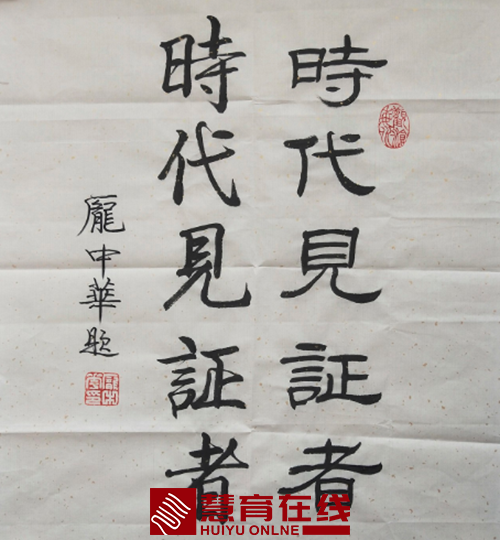 時代見証者
時代見証者
龐中華題
慧育在线
HUIYU ONLNE